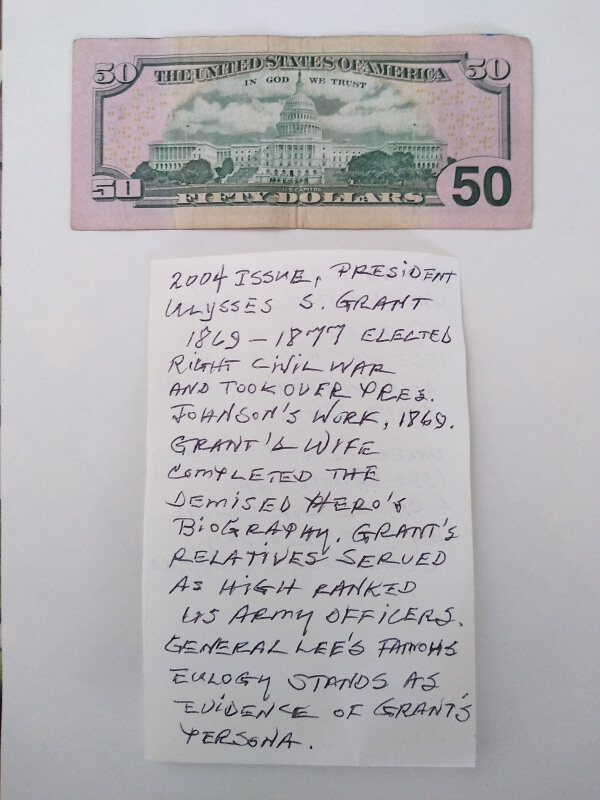 50 THE UNITED STATES OF AMERICA 50
IN GOD WE TRUST
U.S. CAPITOL
50 FIFTY DOLLARS 50
2004 ISSUE, PRESIDENT
ULYSSES S. GRANT
1869 - 1877 ELECTED
RIGHT CIVIL WAR
AND TOOK OVER PRES.
JOHNSON'S WORK, 1869.
GRANT'S WIFE
COMPLETED THE
DEMISED HERO'S
BIOGRAPHY. GRANT'S
RELATIVES SERVED
AS HIGH RANKED
US ARMY OFFICERS.
GENERAL LEE'S FAMOUS
EULOGY STANDS AS
EVIDENCE OF GRANT'S
PERSONA.